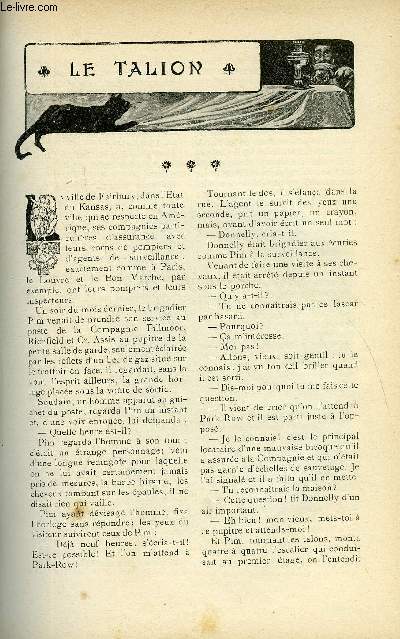 Le-livre.com
LE TALION
La ville de Fairbury, dans l'État
du Kansas, a, comme toute
ville qui se respecte en Amé-
rique, ses compagnies parti-
culières d'assurance avec
leurs corps de pompiers et
d'agents de surveillance,
exactement comme à Paris,
le Louvre et le Bon Marché, par
exemple, ont leurs pompiers et leurs
inspecteurs.
Un soir du mois dernier, le brigadier
Pim venait de prendre son service au
poste de la Compagnie
et Co. Assis au pupitre de la
petite salle de garde, seulement éclairée
par les reflets d'un bec de gaz situé sur
le trottoir en face, il regardait, sans la
voir, l'esprit ailleurs, la grande hor-
loge placée sous la voûte de sortie.
Soudain, un homme apparut au gui-
chet du poste, regarda Pim un instant
et, d'une voix enrouée, lui demanda :
— Quelle heure est-il?
Pim regarda l'homme à son tour :
c'était un étrange personnage; vêtu
d'une longue redingote pour laquelle
on ne lui avait certainement jamais
pris de mesures, la barbe hirsute, les
cheveux tombant sur les épaules, il ne
disait rien qui vaille.
Pim ayant dévisagé l'homme, fixa
l'horloge sans répondre; les yeux du
visiteur suivirent ceux de Pim :
— Déjà neuf heures! s'écria-t-il!
Est-ce possible! Et l'on m'attend à
Park-Row!
Tournant le dos, il s'élança dans la
rue. L'agent le suivit des yeux une
seconde, prit un papier, un crayon,
mais, avant d'avoir écrit un seul mot :
— Donnelly, cria-t-il.
Donnelly était brigadier aux écuries
comme Pim à la surveillance.
Venant de faire une visite à ses che-
vaux, il était arrêté depuis un instant
sous le porche.
— Qu'y a-t-il?
— Tu ne connaîtrais pas ce lascar
par hasard.
— Pourquoi?
— Ça m'intéresse.
— Moi pas!
— Allons, vieux, sois gentil : tu le
connais, j'ai vu ton œil briller quand
il est sorti.
— Dis-moi pourquoi tu me fais cette
question.
— Il vient de crier qu'on l'attend à
Park-Row et il est parti juste à l'op-
posé.
— Je le connais, c'est le principal
locataire d'une mauvaise bicoque qu'il
a assurée à la Compagnie et qui n'était
pas garnie d'échelles de sauvetage. Je
l'ai signalé et il a fallu qu'il en mette.
— Tu reconnaîtrais la maison?
— Cette question! fit Donnelly d'un
air important.
— Eh bien! mon vieux, mets-toi à
ce pupitre et attends-moi!
Et Pim, tournant les talons, monta
quatre à quatre l'escalier qui condui-
sait au premier étage, on l'entendit